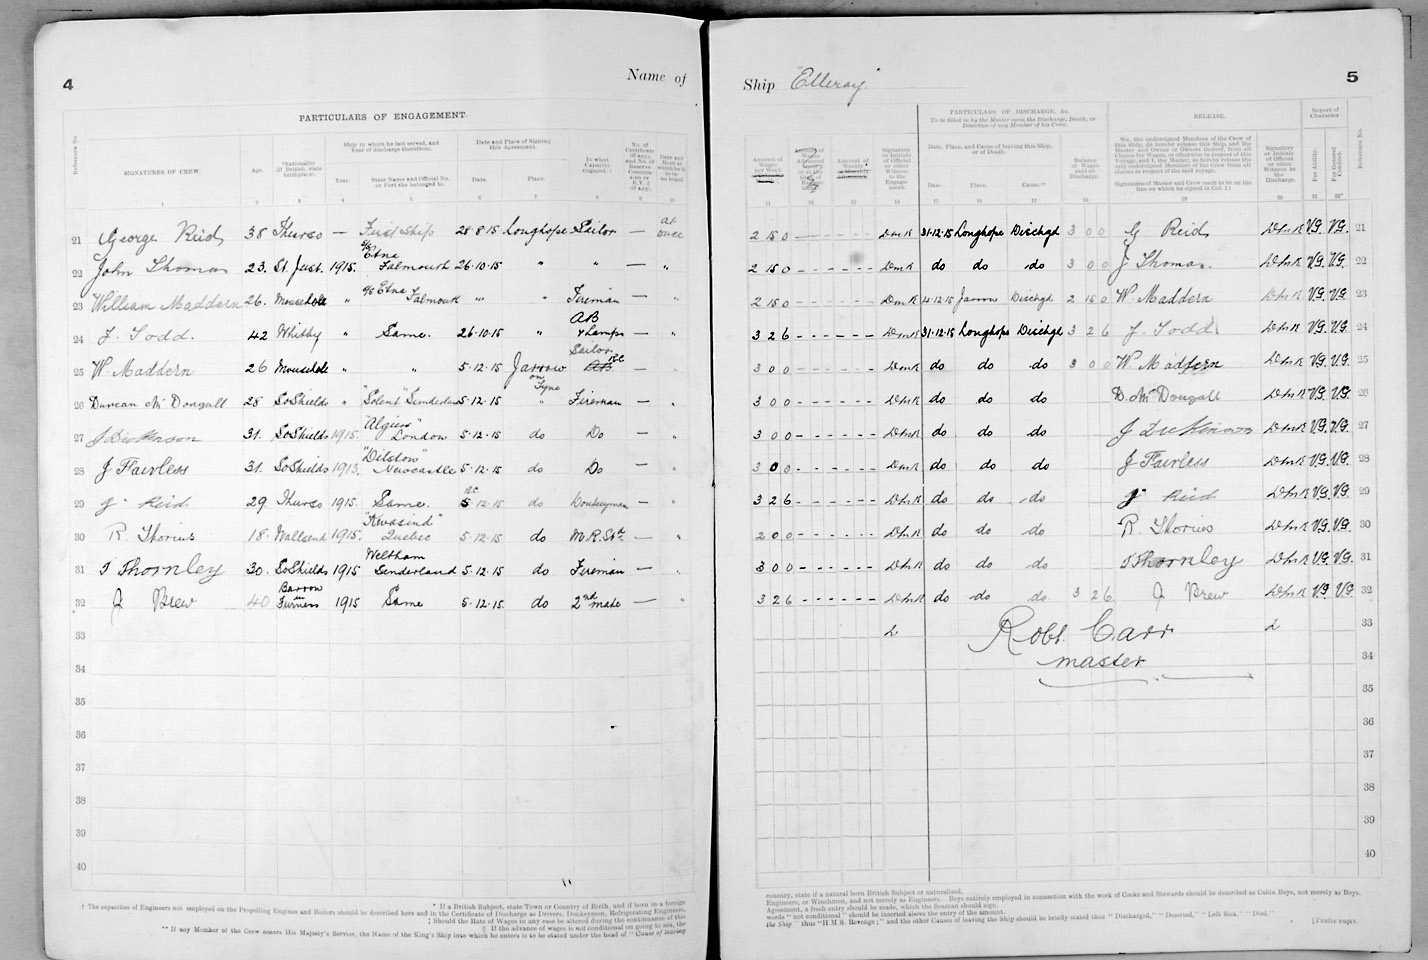 4
Name of
PARTICULARS OF ENGAGEMENT.
Reference No.
SIGNATURES OF CREW.
Age.
*Nationality (If British, state birthplace).
Ship in which he last served, and Year of discharge therefrom.
Year.
State Name and Official No. or Port she belonged to.
Date and Place of Signing this Agreement.
Date.
Place.
In what Capacity engaged.
No. of Certificate (if any), and No. of Reserve Commission or R.V.2 (if any).
Date and Hour at which he is to be on board
1 2 3 4 5 6 7 8 9 10
21 George Reid 38 Thurso — First Ship 28·8·15 Longhope Sailor — at once
22 John Thomas 23. St. Just. 1915. S/S Etna Falmouth 26·10·15 " " — "
23 William Maddern 26. Mousehole " S/S Etna Falmouth " " Fireman — "
24 J. Todd. 42 Whitby " Same. 26·10·15 " AB & Lamps — "
25 W. Maddern 26 Mousehole " " 5·12·15 Jarrow on Tyne Sailor AB RC — "
26 Duncan McDougall 28 So Shields " "Solent" Sunderland 5·12·15 " Fireman — "
27 J Dickinson 31. So Shields 1915. "Algiers" London 5·12·15 do Do — "
28 J Fairless 31. So Shields 1913. "Dilston" Newcastle 5·12·15 do Do — "
29 J Reid 29. Thurso 1915. Same. RC 5·12·15 do Donkeyman — "
30 R. Thorius 18. Wallsend 1915. "Kwasind" Quebec 5·12·15 do M.R.Std. — "
31 T Thornley 30. So Shields 1915 Weltham Sunderland 5·12·15 do Fireman — "
32 J Brew 40 Barrow in Furness 1915 Same 5·12·15. do 2nd mate — "
33
34
35
36
37
38
39
40
* If a British Subject, state Town or Country of Birth, and if born in a foreign
† The capacities of Engineers not employed on the Propelling Engines and Boilers should be described here and in the Certificate of Discharge as Drivers, Donkeymen, Refrigerating Engineers,
‡ Should the Rate of Wages in any case be altered during the continuance of this
|| If the advance of wages is not conditional on going to sea, the
** If any Member of the Crew enters His Majesty's Service, the Name of the King's Ship into which he enters is to be stated under the head of "Cause of leaving
Ship "Elleray"
5
PARTICULARS OF DISCHARGE, &c.
To be filled in by the Master upon the Discharge, Death, or Desertion of any Member of his Crew.
RELEASE.
Report of Character
Amount of Wages per Week
Signature or Initials of Official or other Witness to the Engagement.
Date, Place, and Cause of leaving this Ship, or of Death.
Date.
Place.
Cause.**
Balance of Wages paid on Discharge.
We, the undersigned Members of the Crew of this Ship, do hereby release this Ship, and the Master and Owner or Owners thereof, from all Claims for Wages, or otherwise in respect of this Voyage, and I, the Master, do hereby release the said undersigned Members of the Crew from all claims in respect of the said voyage.
Signatures of Master and Crew (each to be on the line on which he signed in Col. 1.)
Signature or Initials of Official or other Witness to the Discharge.
For Ability.
For General Conduct.
Reference No.
11 12 13 14 15 16 17 18 19 20 21 22
2 15 0 DmR 31·12·15 Longhope Dischgd 3 0 0 G Reid DmR V.G. V.G. 21
2 15 0 DmR do do do 3 0 0 J Thomas. DmR V.G. V.G. 22
2 15 0 DmR 4·12·15 Jarrow Dischgd 2 15 0 W. Maddern DmR V.G. V.G. 23
3 2 6 DmR 31·12·15 Longhope Dischgd 3 2 6 J. Todd DmR V.G. V.G. 24
3 0 0 DmR do do do 3 0 0 W Maddern DmR V.G. V.G. 25
3 0 0 DmR do do do D. McDougall DmR V.G. V.G. 26
3 0 0 DmR do do do J Dickinson DmR V.G. V.G. 27
3 0 0 DmR do do do J Fairless DmR V.G. V.G. 28
3 2 6 DmR do do do J Reid DmR V.G. V.G. 29
2 0 0 DmR do do do R. Thorius DmR V.G. V.G. 30
3 0 0 DmR do do do T Thornley DmR V.G. V.G. 31
3 2 6 DmR do do do 3 2 6 J Brew DmR V.G V.G. 32
Robt. Carr 33
master 34
35
36
37
38
39
40
country, state if a natural born British Subject or naturalised.
Engineers, or Winchmen, and not merely as Engineers. Boys entirely employed in connection with the work of Cooks and Stewards should be described as Cabin Boys, not merely as Boys.
Agreement, a fresh entry should be made, which the Seaman should sign.
words "not conditional" should be inserted above the entry of the amount.
the Ship" thus "H.M.S. Revenge;" and the other Causes of leaving the Ship should be briefly stated thus "Discharged," "Deserted," "Left Sick," "Died."
[Twelve pages.